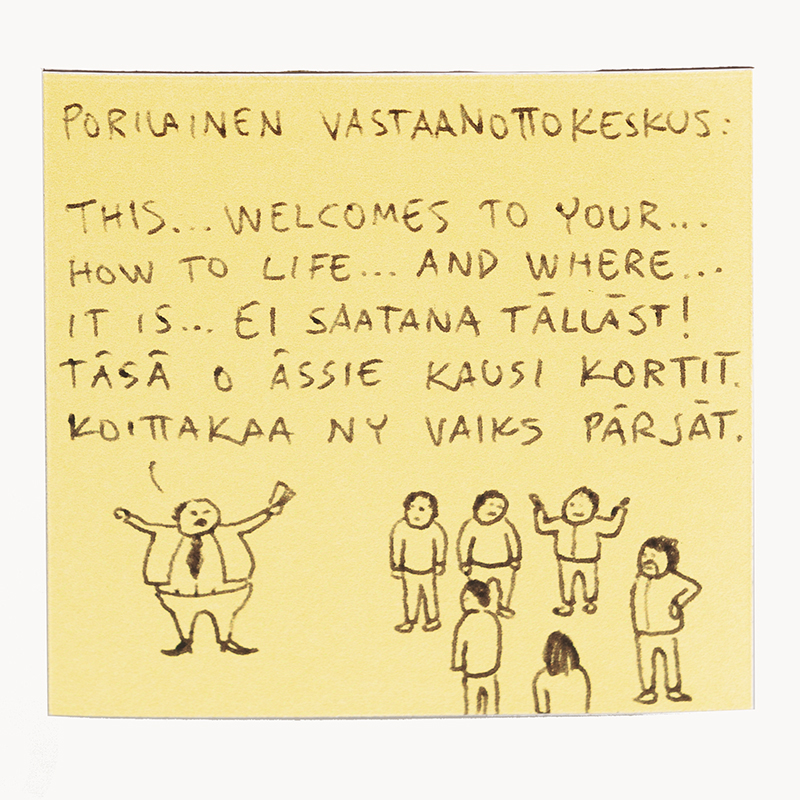 PORILAINEN VASTAANOTTOKESKUS:
THIS... WELCOMES TO YOUR...
HOW TO LIFE... AND WHERE...
IT IS... EI SAATANA TÄLLÄST!
TÄSÄ O ÄSSIE KAUSI KORTIT.
KOITTAKAA NY VAIKS PÄRJÄT.